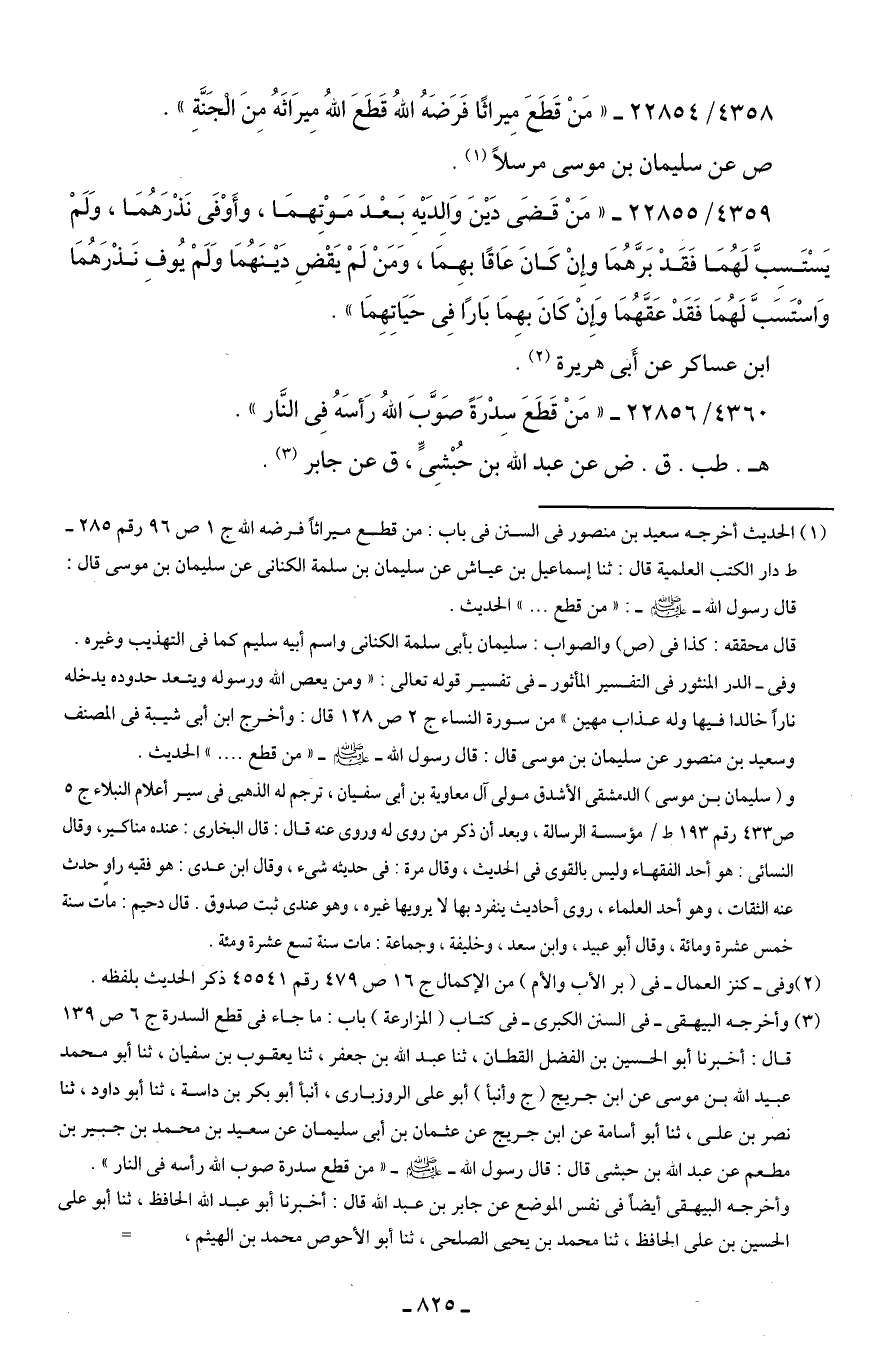 ٤٣٥٨/ ٢٢٨٥٤ ـ « مَنْ قَطَعَ مِيرَاثًا فَرَضَهُ اللهُ قَطَعَ اللهُ مِيرَاثَهُ مِنَ الْجَنَّةِ » .
ص عن سليمان بن موسى مرسلاً (١) .
٤٣٥٩/ ٢٢٨٥٥ ـ « مَنْ قَضَى دَيْنَ وَالدَيْهِ بَعْدَ مَوْتِهِمَا ، وأَوْفَى نَذْرَهُمَا ، ولَمْ
يَسْتَسِبَّ لَهُمَا فَقَدْ بَرَّهُمَا وإِنْ كَانَ عَاقًا بِهِمَا ، ومَنْ لَمْ يَقْضِ دَيْنَهُمَا ولَمْ يُوفِ نَذْرَهُمَا
وَاسْتَسَبَّ لَهُمَا فَقَدْ عَقَّهُمَا وَإِنْ كَانَ بِهِمَا بَارًا فِى حَيَاتِهِمَا » .
ابن عساكر عن أَبى هريرة (٢) .
٤٣٦٠/ ٢٢٨٥٦ ـ « مَنْ قَطَعَ سِدْرَةً صَوَّبَ اللهُ رَأسَهُ فِى النَّار » .
هـ . طب . ق . ض عن عبد الله بن حُبْشىٍّ ، ق عن جابر (٣) .
(١) الحديث أخرجه سعيد بن منصور فى السنن فى باب : من قطع ميراثاً فرضه الله ج ١ ص ٩٦ رقم ٢٨٥ ـ
ط دار الكتب العلمية قال : ثنا إسماعيل بن عياش عن سليمان بن سلمة الكنانى عن سليمان بن موسى قال :
قال رسول الله ـ ﷺ ـ : « من قطع ... » الحديث .
قال محققه : كذا فى (ص) والصواب : سليمان بأبى سلمة الكنانى واسم أبيه سليم كما فى التهذيب وغيره .
وفى ـ الدر المنثور فى التفسير المأثور ـ فى تفسير قوله تعالى : « ومن يعص الله ورسوله ويتعد حدوده يدخله
ناراً خالدا فيها وله عذاب مهين » من سورة النساء ج ٢ ص ١٢٨ قال : وأخرج ابن أبى شيبة فى المصنف
وسعيد بن منصور عن سليمان بن موسى قال : قال رسول الله ـ ﷺ ـ « من قطع .... » الحديث .
و ( سليمان بن موسى ) الدمشقى الأشدق مولى آل معاوية بن أبى سفيان ، ترجم له الذهبى فى سير أعلام النبلاء ج ٥
ص٤٣٣ رقم ١٩٣ ط / مؤسسة الرسالة ، وبعد أن ذكر من روى له وروى عنه قال : قال البخارى : عنده مناكير، وقال
النسائى : هو أحد الفقهاء وليس بالقوى فى الحديث ، وقال مرة : فى حديثه شىء ، وقال ابن عدى : هو فقيه راوٍ حدث
عنه الثقات ، وهو أحد العلماء ، روى أحاديث ينفرد بها لا يرويها غيره ، وهو عندى ثبت صدوق . قال دحيم : مات سنة
خمس عشرة ومائة ، وقال أبو عبيد ، وابن سعد ، وخليفة ، وجماعة : مات سنة تسع عشرة ومئة .
(٢)وفى ـ كنز العمال ـ فى ( بر الأب والأم ) من الإكمال ج ١٦ ص ٤٧٩ رقم ٤٥٥٤١ ذكر الحديث بلفظه .
(٣) وأخرجه البيهقى ـ فى السنن الكبرى ـ فى كتاب ( المزارعة ) باب : ما جاء فى قطع السدرة ج ٦ ص ١٣٩
قال : أخبرنا أبو الحسين بن الفضل القطان ، ثنا عبد الله بن جعفر ، ثنا يعقوب بن سفيان ، ثنا أبو محمد
عبيد الله بن موسى عن ابن جريج ( ح وأنبأ ) أبو على الروزبارى ، أنبأ أبو بكر بن داسة ، ثنا أبو داود ، ثنا
نصر بن على ، ثنا أبو أسامة عن ابن جريج عن عثمان بن أبى سليمان عن سعيد بن محمد بن جبير بن
مطعم عن عبد الله بن حبشى قال : قال رسول الله ـ ﷺ ـ « من قطع سدرة صوب الله رأسه فى النار » .
وأخرجه البيهقى أيضاً فى نفس الموضع عن جابر بن عبد الله قال : أخبرنا أبو عبد الله الحافظ ، ثنا أبو على
الحسين بن على الحافظ ، ثنا محمد بن يحيى الصلحى ، ثنا أبو الأحوص محمد بن الهيثم ، =
ـ ٨٢٥ ـ